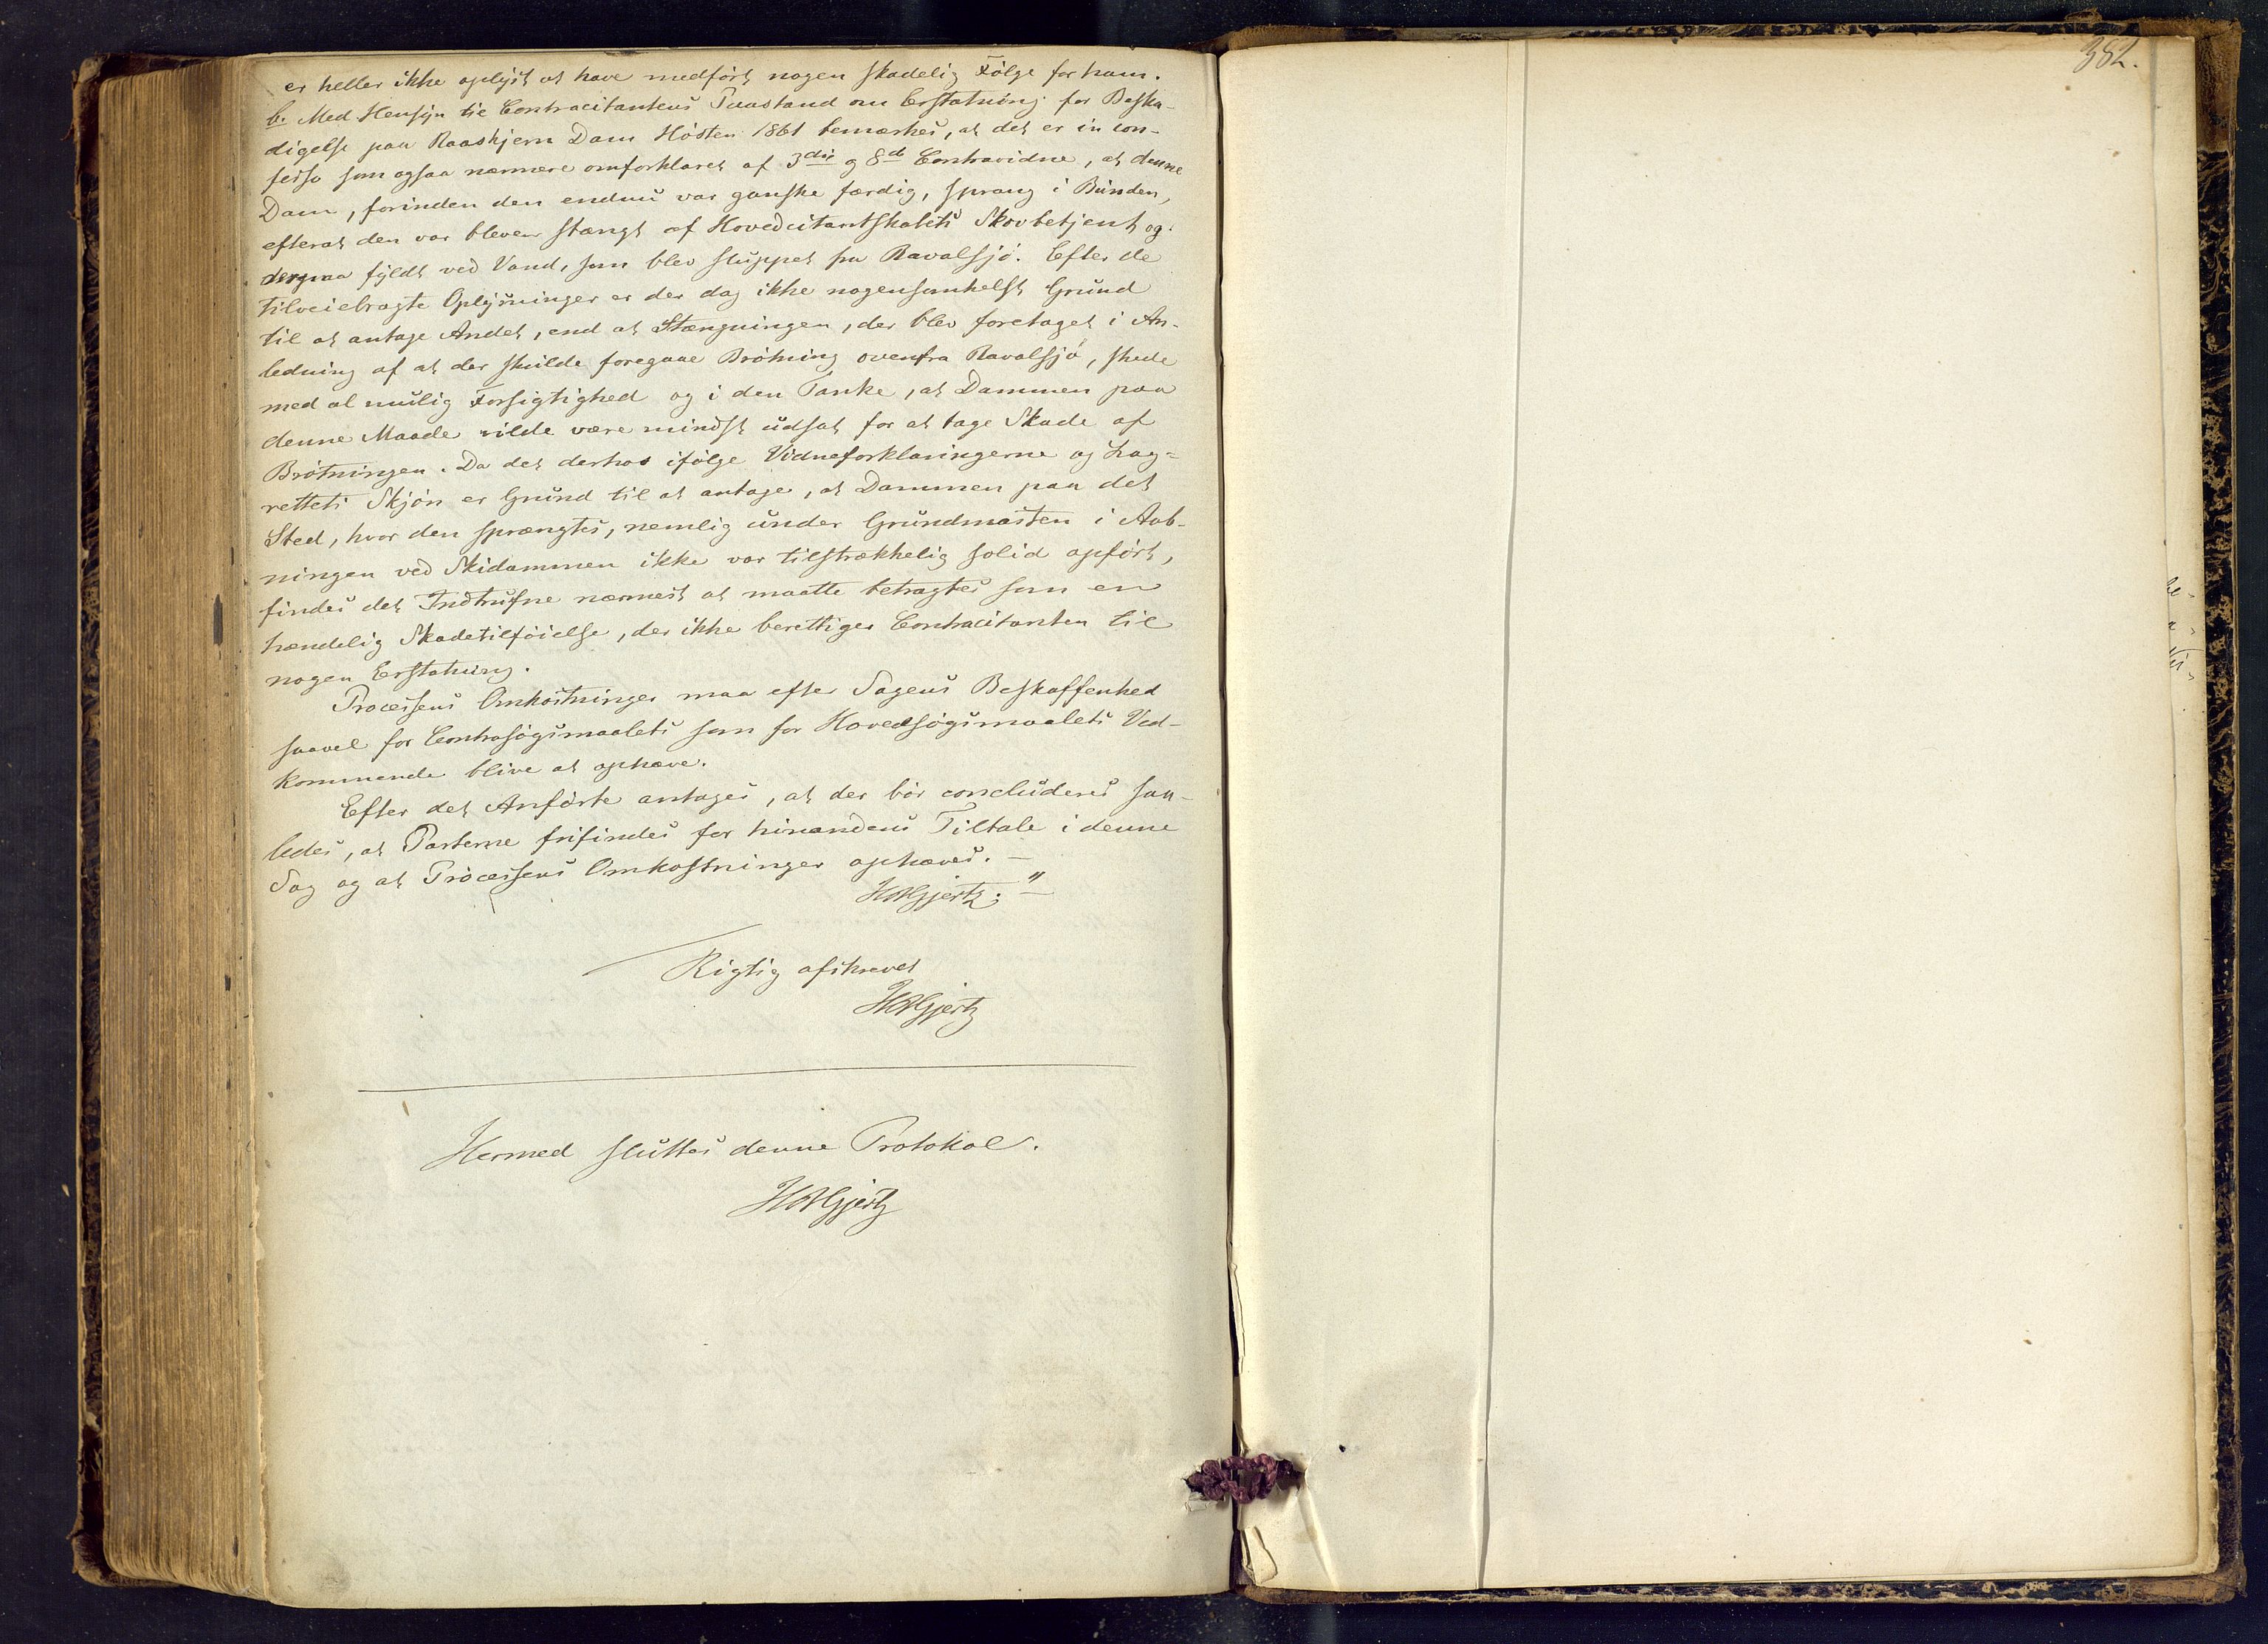 er heller ikke oplyst at have medført nogen skadelig Følge for ham.
b. Med Hensyn til Contracitantens Paastand om Erstatning for Beska-
digelse paa Raaskjern Dam Høsten 1861 bemærkes, at det er in con-
fesso som ogsaa nærmere omforklaret af 3die og 8de Contravidne, at denne
Dam, forinden den endnu var ganske færdig, sprang i Bunden,
efterat den var bleven stængt af Hovedcitantskabets Skovbetjent og
derpaa fyldt ved Vand, som blev sluppet fra Ravalsjø. Efter de
tilveiebragte Oplysninger er der dog ikke nogensomhelst Grund
til at antage Andet, end at Stængningen, der blev foretaget i An-
ledning af at der skulde foregaae Brøtning ovenfra Ravalsjø, skede
med al mulig Forsigtighed og i den Tanke, at Dammen paa
denne Maade vilde være mindst udsat for at tage Skade af
Brøtningen. Da det derhos ifølge Vidneforklaringerne og Lag-
rettets Skjøn er Grund til at antage, at Dammen paa det
Sted, hvor den sprængtes, nemlig under Grundmasten i Aab-
ningen ved Skidammen ikke var tilstrækkelig solid opført,
findes det Indtrufne nærmest at maatte betragtes som en
hændelig Skadetilføielse, der ikke berettiger Contracitanten til
nogen Erstatning.
Processens Omkostninger maa efter Sagens Beskaffenhed
saavel for Contrasøgsmaalets som for Hovedsøgsmaalets Ved-
kommende blive at ophæve.
Efter det Anførte antages, at der bør concluderes saa-
ledes, at Parterne frifindes for hinandens Tiltale i denne
Sag og at Processens Omkostninger ophæves. —
HAGjertz. "
Rigtig afskrevet
HAGjertz
Hermed sluttes denne Protokol.
HAGjertz
382.